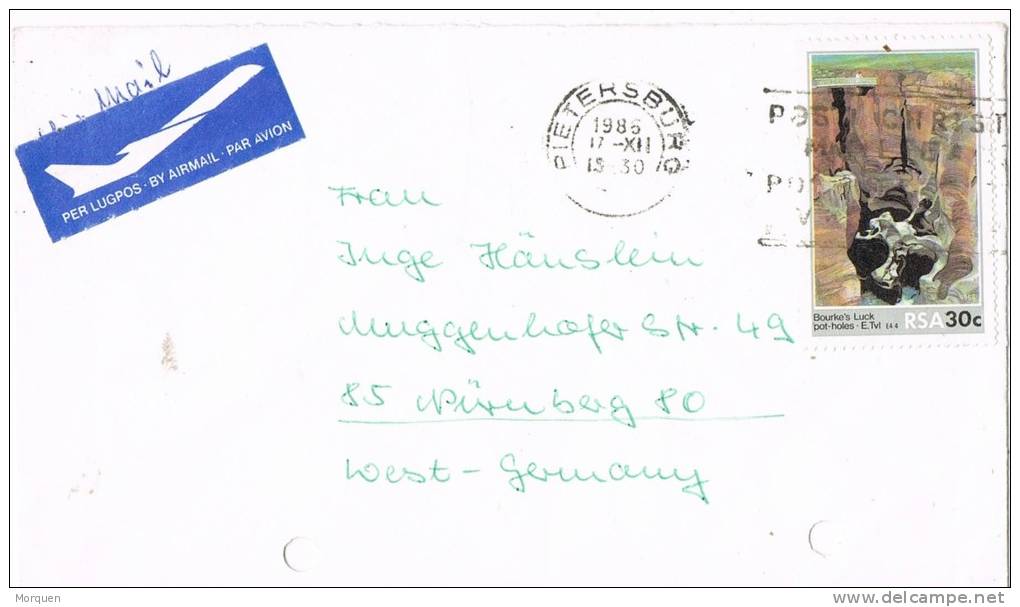 Air Mail
PER LUGPOS · BY AIRMAIL · PAR AVION
PIETERSBURG
1986
17-XII
19 30
POST
Bourke's Luck
pot-holes · E.Tvl
RSA 30c
Frau
Inge Häuslein
Muggenhofer Str. 49
85 Nürnberg 80
West-Germany
Morquen
delcampe.net